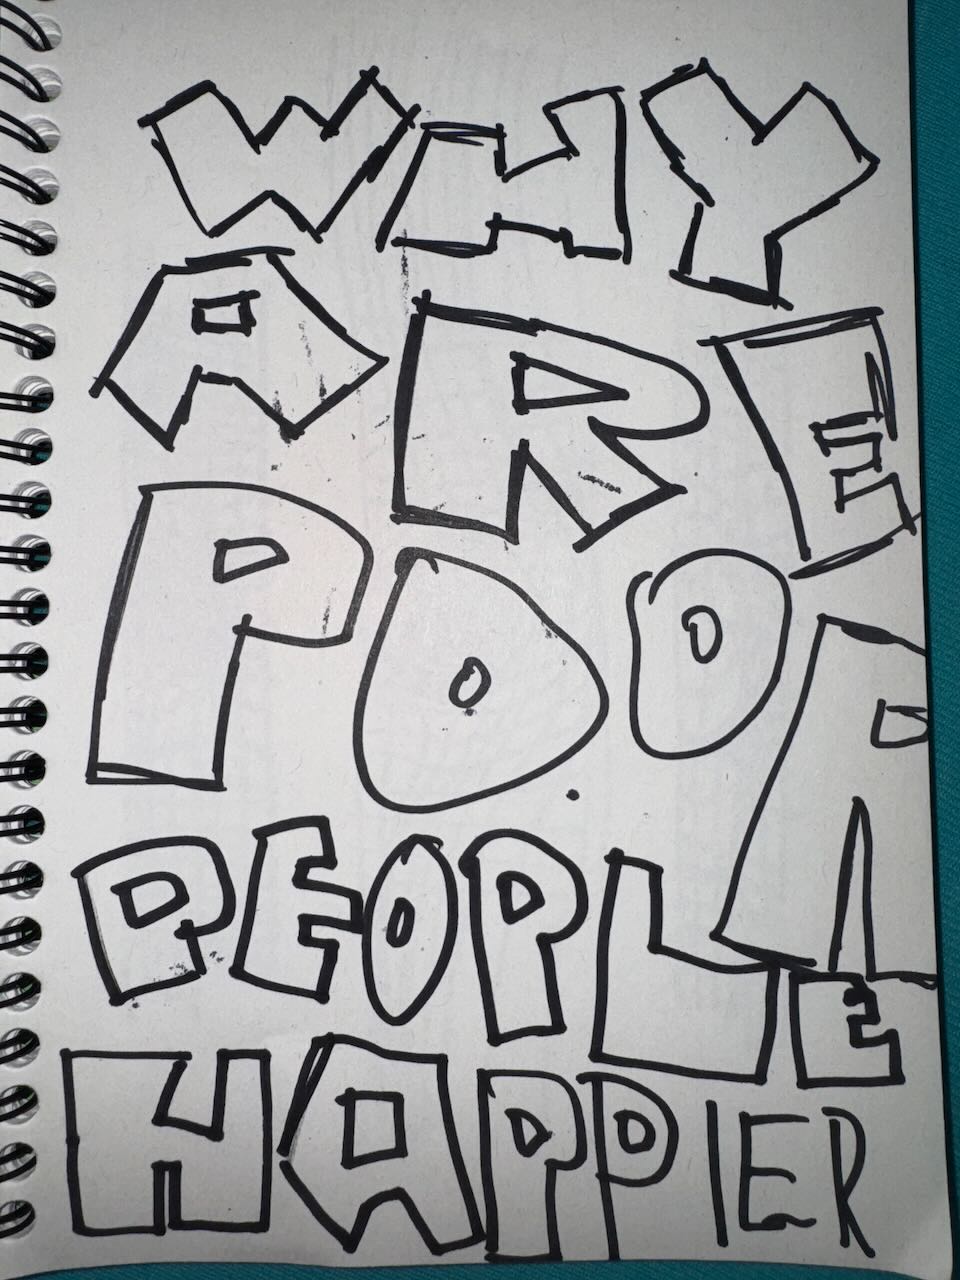 WHY
ARE
POOR
PEOPLE
HAPPIER